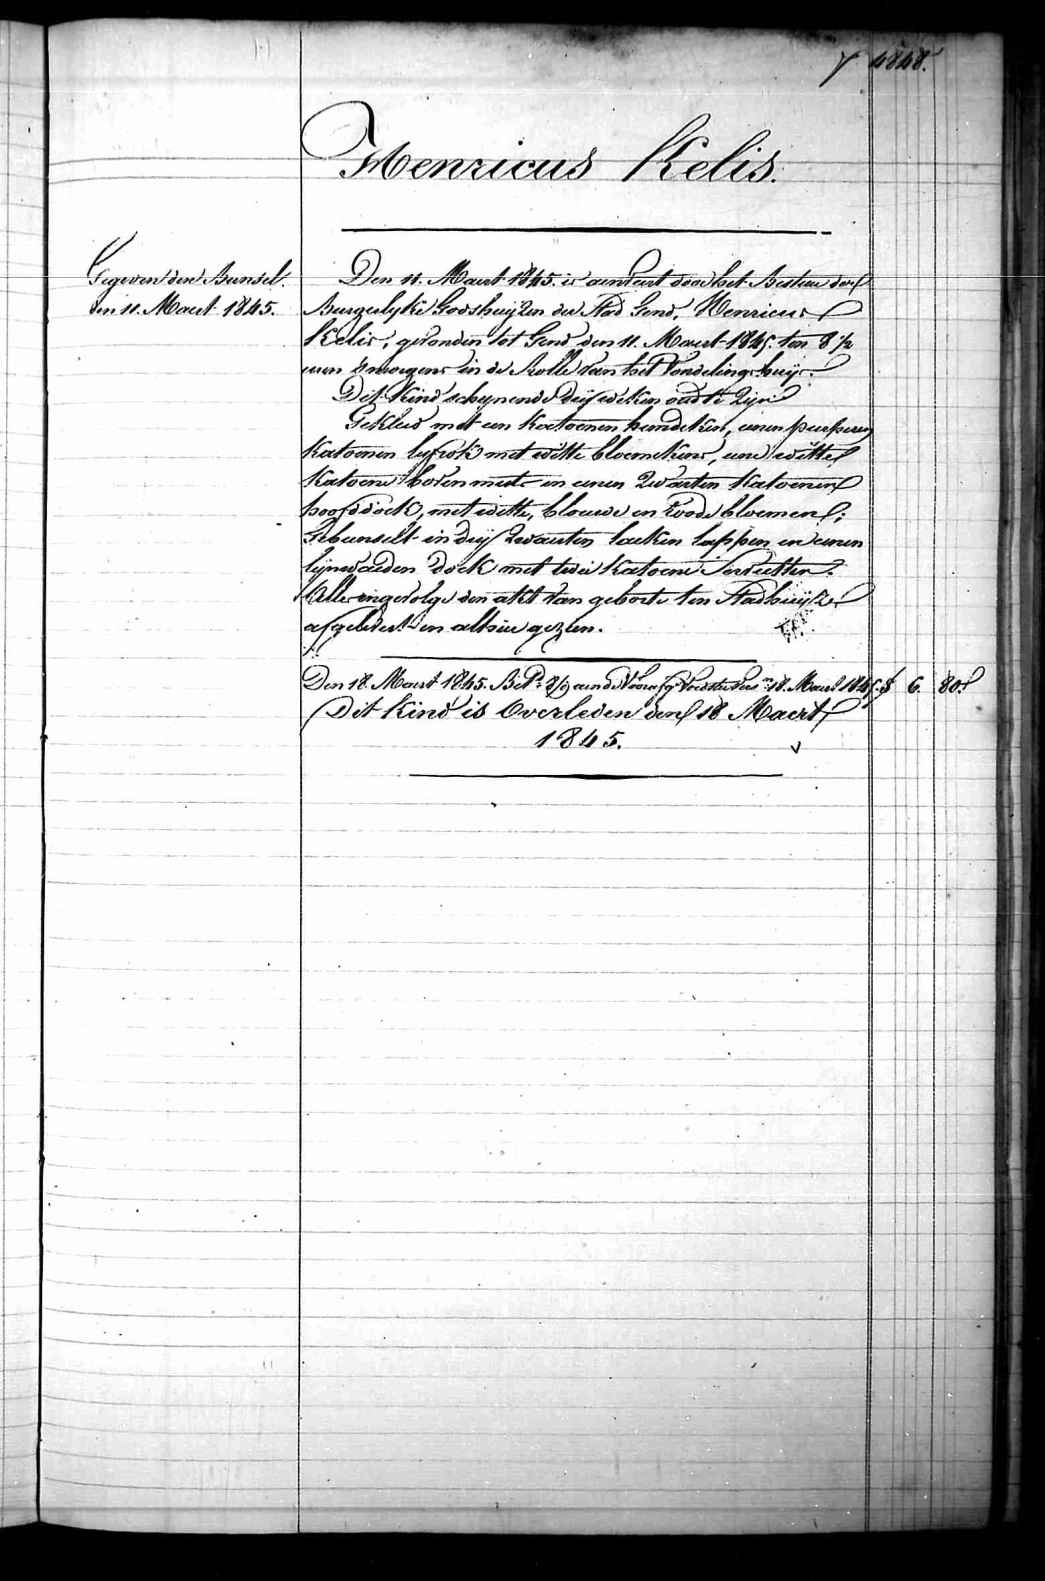 4848.
Henricus Kelis.
Gegeven den Bunsel.
den 11. Maert 1845.
Den 11. Maert 1845. is aenveirt door het Bestier der
Burgerlyke Godshuijzen der Stad Gend, Henricus
Kelis, gevonden tot Gend den 11. Maert 1845. ten 8 1/2
uren 's morgens in de Rolle van het Vondelinghuijs.
Dit Kind schynende drij weken oud te zijn
Gekleed met een katoenen hemdeken, eenen purperen
katoenen lijfrok met witte bloemekens, eene witte
katoene boven mutse en eenen zwarten katoenen
hoofddoek, met witte, blauwe en roode bloemen;
Gebunselt in drij zwarten laeken lappen en eenen
lijnwaeden doek met twee katoene Servietten.
Alles ingevolge den akt van geboorte ten Stadhuijze
afgelevert en alhier gezien.
Den 18. Maert 1845. Bet. 8/9 aen de Voorafg. Voedster 18. Maert 1845. f 6. 80.
Dit kind is Overleden den 18 Maert
1845.